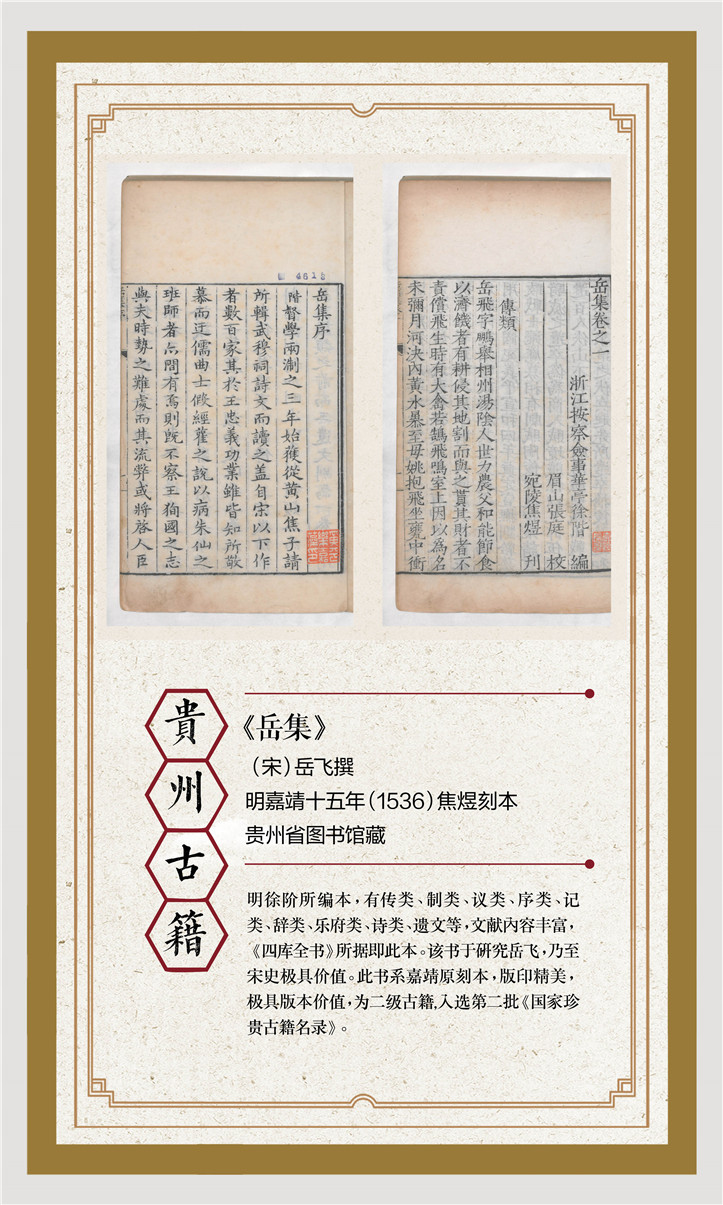 4618
岳集序
階督學兩淛之三年始獲從黄山焦子請
所輯武穆祠詩文而讀之盖自宋以下作
者數百家其於王忠義功業雖皆知所敬
慕而迂儒曲士倐經權之說以病朱仙之
班師者亦間有焉則旣不察王狥國之志
與夫時勢之難處而其流弊或將啓人臣
岳集卷之一
浙江按察僉事華亭徐階 編
眉山張庭 校
宛陵焦煜 刋
傳類
岳飛字鵬舉相州湯隂人世力農父和能節食
以濟饑者有耕侵其地割而與之貰其財者不
責償飛生時有大禽若鵠飛鳴室上因以爲名
未彌月河决內黄水暴至母姚抱飛坐甕中衝
貴州古籍
《岳集》
（宋）岳飞撰
明嘉靖十五年（1536）焦煜刻本
贵州省图书馆藏
明徐阶所编本，有传类、制类、议类、序类、记
类、辞类、乐府类、诗类、遗文等，文献内容丰富，
《四库全书》所据即此本。该书于研究岳飞，乃至
宋史极具价值。此书系嘉靖原刻本，版印精美，
极具版本价值，为二级古籍,入选第二批《国家珍
贵古籍名录》。